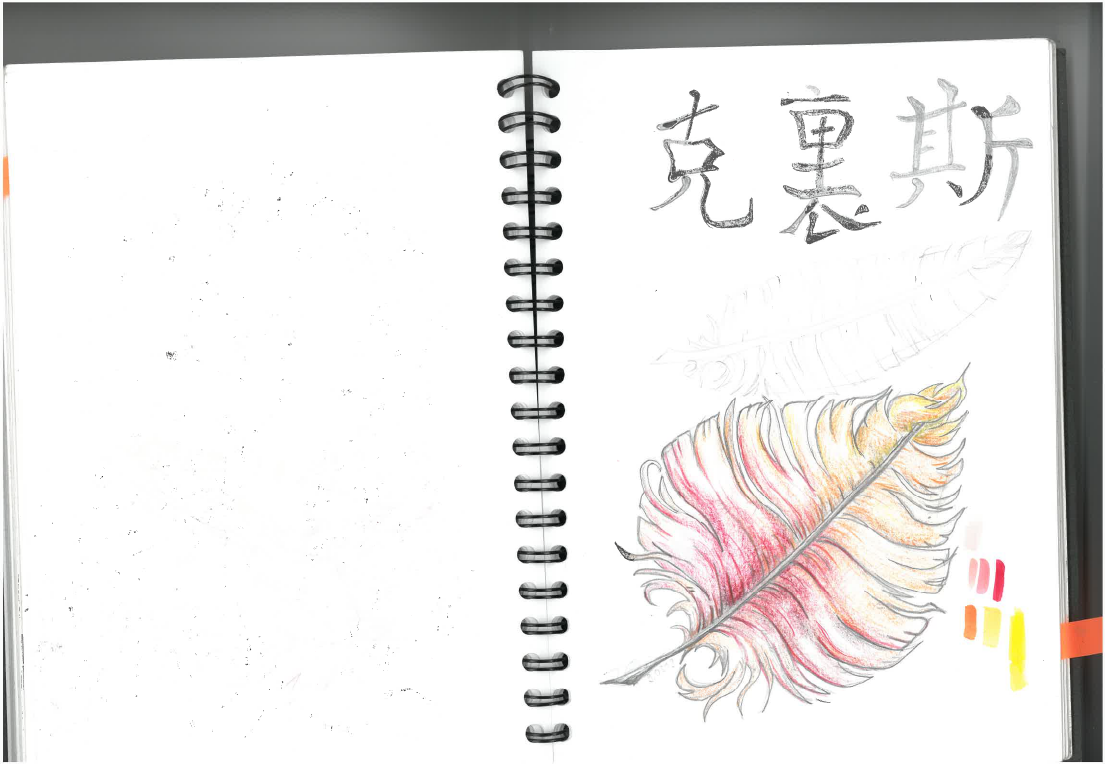 克裏斯